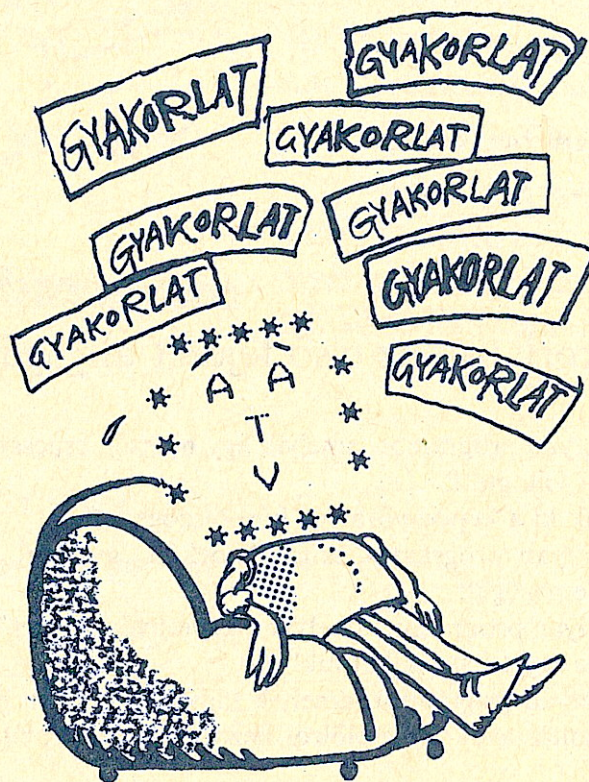 GYAKORLAT
GYAKORLAT
GYAKORLAT
GYAKORLAT
GYAKORLAT
GYAKORLAT
GYAKORLAT
GYAKORLAT
Á Á
T
V